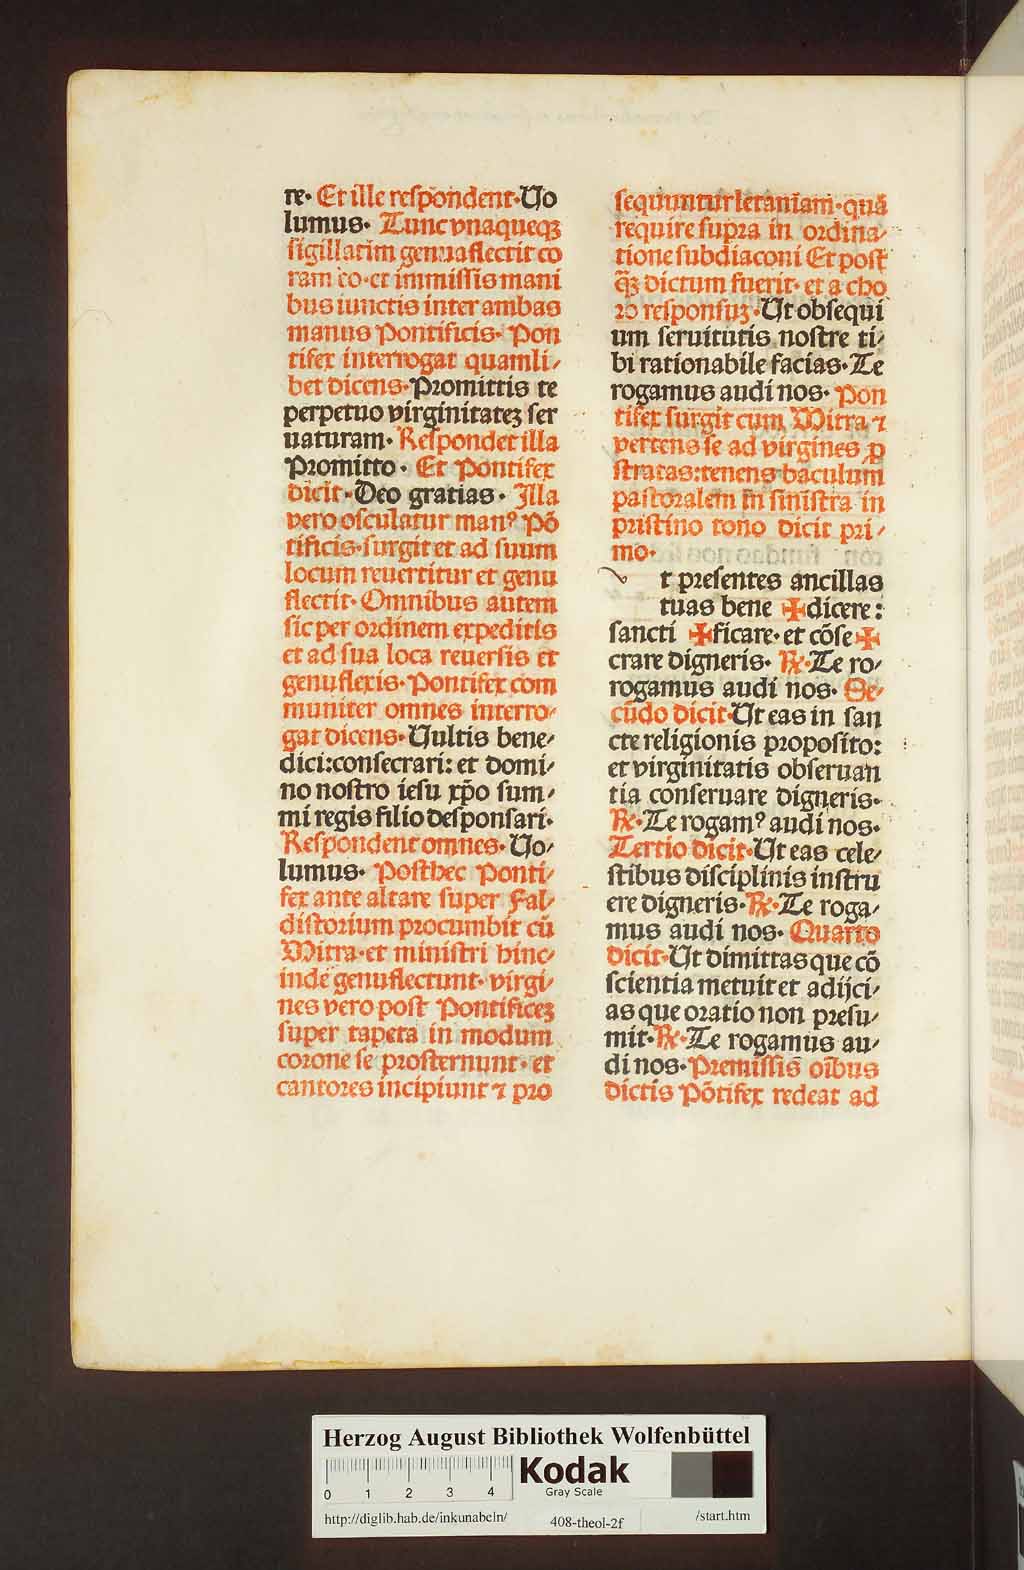 re· Et ille respondent·Uo
lumus· Tunc vnaqueqꝫ
sigillatim genua flectit co
ram eo·et immissis mani
bus iunctis inter ambas
manus Pontificis· Pon
tifex interrogat quamli⸗
bet dicens·Promittis te
perpetuo virginitateꝫ ser
uaturam· Respondet illa
Promitto· Et Pontifex
dicit·Deo gratias· Illa
vero osculatur manꝰ Põ
tificis·surgit et ad suum
locum reuertitur et genu
flectit· Omnibus autem
sic per ordinem expeditis
et ad sua loca reuersis et
genuflexis·Pontifex com
muniter omnes interro⸗
gat dicens·Uultis bene⸗
dici:consecrari: et domi⸗
no nostro iesu xp̃o sum⸗
mi regis filio desponsari·
Respondent omnes· Uo⸗
lumus· Posthec Ponti⸗
fex ante altare super Fal⸗
distorium procumbit cũ
Mitra·et ministri hinc⸗
inde genuflectunt· virgi⸗
nes vero post Pontificeꝫ
super tapeta in modum
corone se prosternunt· et
cantores incipiunt ⁊ pro
sequuntur letaniam·quã
require supra in ordina⸗
tione subdiaconi Et post
q̃ꝫ dictum fuerit· et a cho
ro responsuꝫ·Ut obsequi
um seruitutis nostre ti⸗
bi rationabile facias·Te
rogamus audi nos· Pon
tifex surgit cum Mitra ⁊
vertens se ad virgines ꝓ
stratas:tenens baculum
pastoralem in sinistra in
pristino tono dicit pri⸗
mo·
v t presentes ancillas
tuas bene ✠dicere:
sancti ✠ficare· et cõse✠
crare digneris· ℟·Te ro⸗
rogamus audi nos· Se⸗
cũdo dicit·Ut eas in san
cte religionis proposito:
et virginitatis obseruan
tia conseruare digneris·
℟·Te rogamꝰ audi nos·
Tertio dicit·Ut eas cele⸗
stibus disciplinis instru
ere digneris·℟·Te roga⸗
mus audi nos· Quarto
dicit·Ut dimittas que cõ
scientia metuit et adijci⸗
as que oratio non presu⸗
mit·℟·Te rogamus au⸗
di nos·Premissis oĩbus
dictis Põtifex redeat ad
Herzog August Bibliothek Wolfenbüttel
0 1 2 3 4
Kodak
Gray Scale
http://diglib.hab.de/inkunabeln/ 408-theol-2f /start.htm